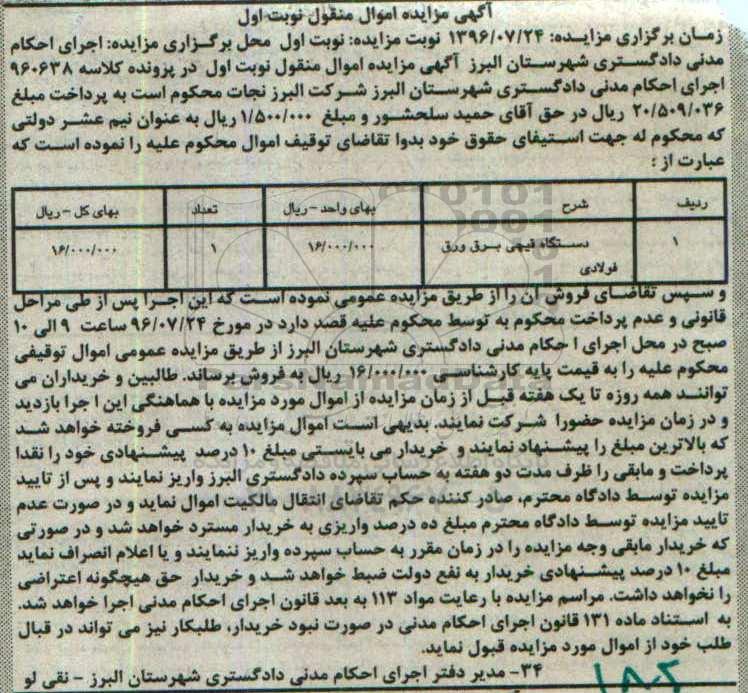 آگهی مزایده اموال منقول نوبت اول
زمـان برگزاری مزایـده: ۱۳۹۶/۰۷/۲۴ نوبت مزایده: نوبت اول محل برگـزاری مزایده: اجرای احکام
مدنی دادگسـتری شهرسـتان البرز آگهی مزایده اموال منقول نوبت اول در پرونده کلاسه ۹۶۰۶۳۸
اجرای احکام مدنی دادگسـتری شهرسـتان البرز شـرکت البرز نجات محکوم است به پرداخت مبلغ
۲۰/۵۰۹/۰۳۶ ریال در حق آقای حمید سلحشـور و مبلغ ۱/۵۰۰/۰۰۰ ریال به عنوان نیم عشـر دولتی
که محکوم له جهت اسـتیفای حقوق خود بدوا تقاضای توقیف اموال محکوم علیه را نموده اسـت که
عبارت از :
ردیف شرح بهای واحد - ریال تعداد بهای کل - ریال
۱ دسـتگاه قیچی بـرق ورق ۱۶/۰۰۰/۰۰۰ ۱ ۱۶/۰۰۰/۰۰۰
فولادی
و سـپس تقاضـای فروش آن را از طریق مزایده عمومی نموده اسـت که این اجـرا پس از طی مراحل
قانونی و عدم پرداخت محکوم به توسط محکوم علیه قصد دارد در مورخ ۹۶/۰۷/۲۴ ساعت ۹ الی ۱۰
صبح در محل اجرای ا حکام مدنی دادگستری شهرستان البرز از طریق مزایده عمومی اموال توقیفی
محکوم علیه را به قیمت پایه کارشناسـی ۱۶/۰۰۰/۰۰۰ ریال به فروش برساند. طالبین و خریداران می
توانند همه روزه تا یک هفته قبـل از زمان مزایده از اموال مورد مزایده با هماهنگی این ا جرا بازدید
و در زمان مزایده حضورا شـرکت نمایند. بدیهی اسـت اموال مزایده به کسـی فروخته خواهد شـد
که بالاترین مبلغ را پیشـنهاد نمایند و خریدار می بایسـتی مبلغ ۱۰ درصد پیشـنهادی خود را نقدا
پرداخت و مابقی را ظرف مدت دو هفته به حساب سپرده دادگستری البرز واریز نمایند و پس از تایید
مزایده توسـط دادگاه محترم، صادر کننده حکم تقاضای انتقال مالکیت اموال نماید و در صورت عدم
تایید مزایده توسـط دادگاه محترم مبلغ ده درصد واریزی به خریدار مسترد خواهد شد و در صورتی
که خریدار مابقی وجه مزایده را در زمان مقرر به حساب سپرده واریز ننمایند و یا اعلام انصراف نماید
مبلغ ۱۰ درصد پیشـنهادی خریدار به نفع دولت ضبط خواهد شـد و خریدار حق هیچگونه اعتراضی
را نخواهد داشت. مراسم مزایده با رعایت مواد ۱۱۳ به بعد قانون اجرای احکام مدنی اجرا خواهد شد.
به اسـتناد ماده ۱۳۱ قانون اجرای احکام مدنی در صورت نبود خریدار، طلبکار نیز می تواند در قبال
طلب خود از اموال مورد مزایده قبول نماید.
۳۴- مدیر دفتر اجرای احکام مدنی دادگستری شهرستان البرز - نقی لو